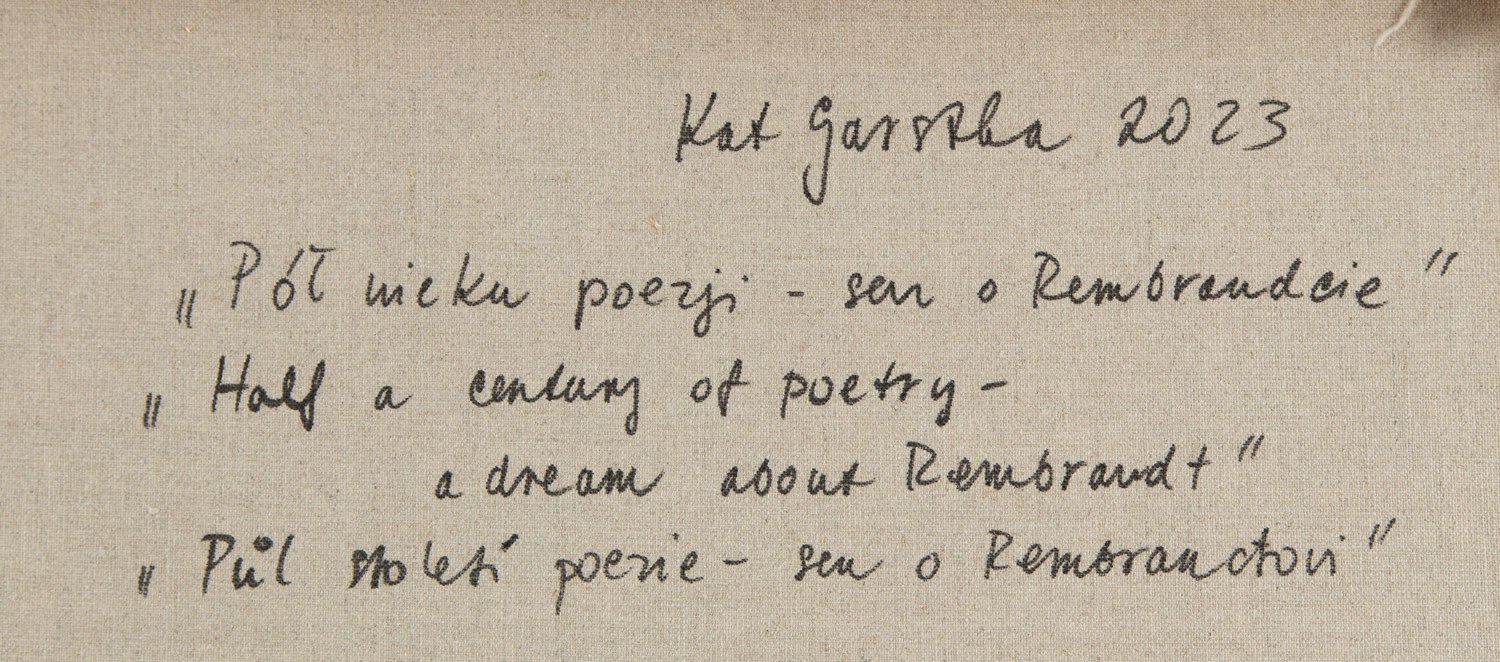 Kat Garstka 2023
„Pół wieku poezji - sen o Rembrandcie"
„Half a century of poetry -
a dream about Rembrandt"
„Půl století poezie - sen o Rembrandtovi"